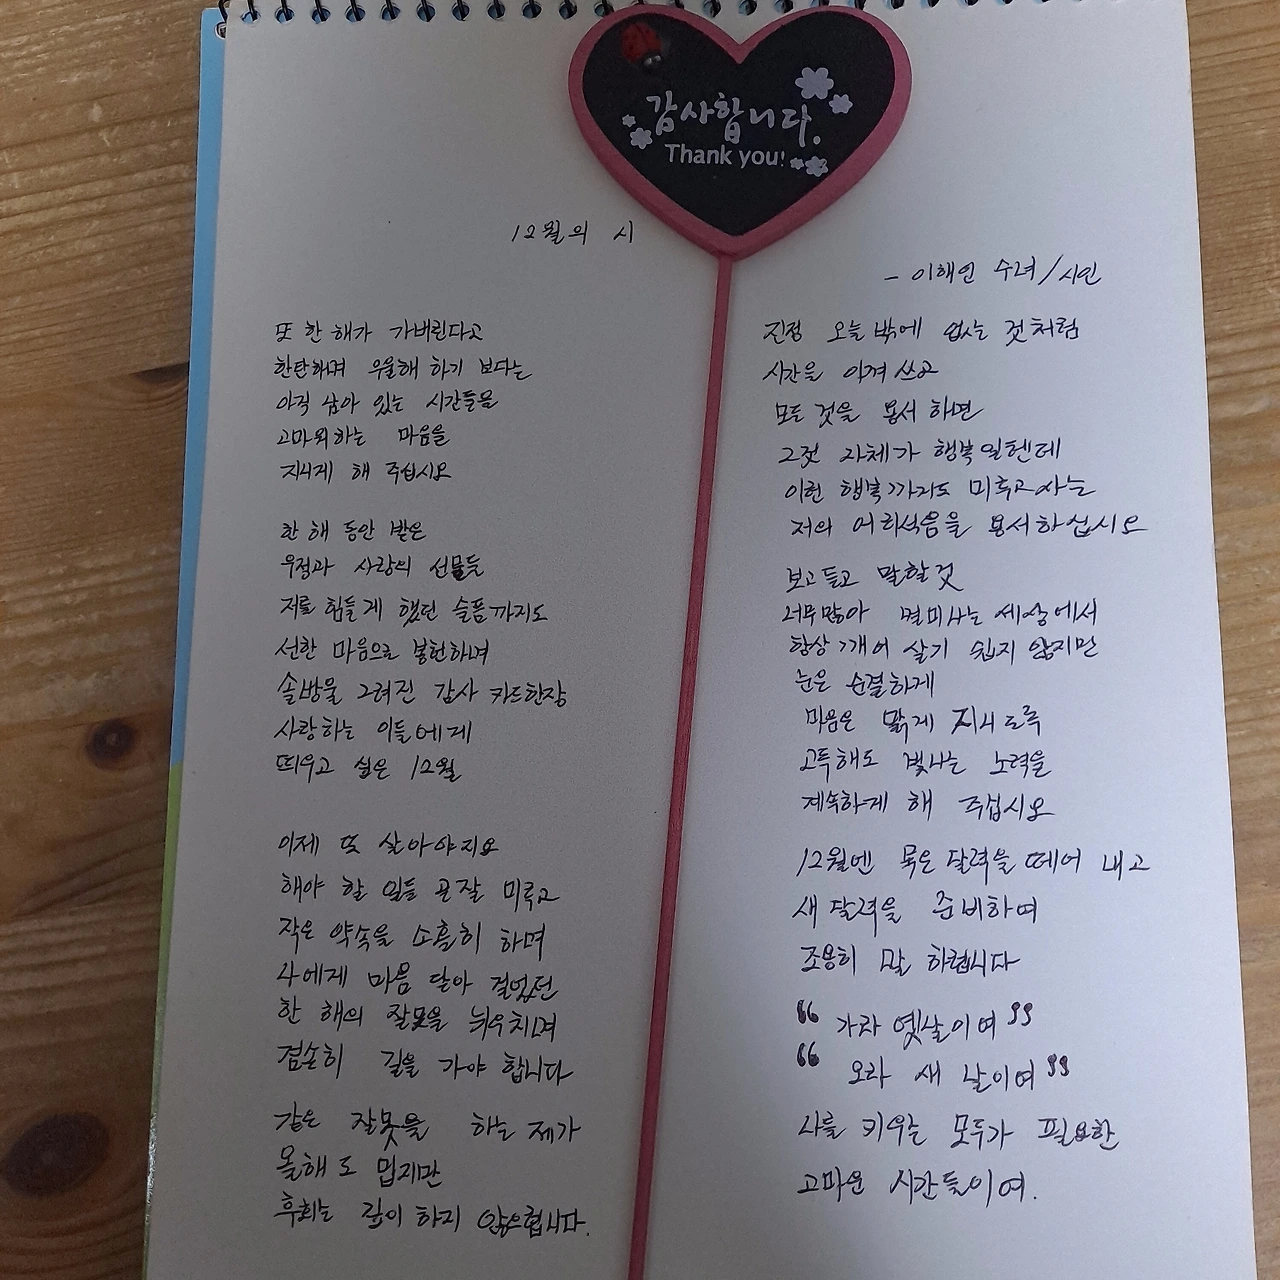 감사합니다.
Thank you!
12월의 시
- 이해인 수녀/시인
또 한 해가 가버린다고
한탄하며 우울해 하기 보다는
아직 남아 있는 시간들을
고마워하는 마음을
지니게 해 주십시오
한 해 동안 받은
우정과 사랑의 선물들
저를 힘들게 했던 슬픔까지도
선한 마음으로 봉헌하며
솔방울 그려진 감사 카드한장
사랑하는 이들에게
띄우고 싶은 12월
이제 또 살아야지요
해야 할 일들 곧잘 미루고
작은 약속을 소홀히 하며
나에게 마음 닫아 걸었던
한 해의 잘못을 뉘우치며
겸손히 길을 가야 합니다
같은 잘못을 하는 제가
올해도 밉지만
후회는 깊이 하지 않으렵니다.
진정 오늘밖에 없는 것처럼
시간을 아껴 쓰고
모든 것을 용서 하면
그것 자체가 행복일텐데
이런 행복까지도 미루고사는
저의 어리석음을 용서하십시오
보고 듣고 말할것
너무많아 멀미나는 세상에서
항상 깨어 살기 쉽지 않지만
눈은 순결하게
마음은 맑게 지니도록
고독해도 빛나는 노력을
계속하게 해 주십시오
12월엔 묵은 달력을 떼어 내고
새 달력을 준비하며
조용히 말 하렵니다
“ 가라 옛날이여 ”
“ 오라 새 날이여 ”
나를 키우는 모두가 필요한
고마운 시간들이여.